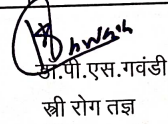 डॉ.पी.एस.गवंडी
स्त्री रोग तज्ञ